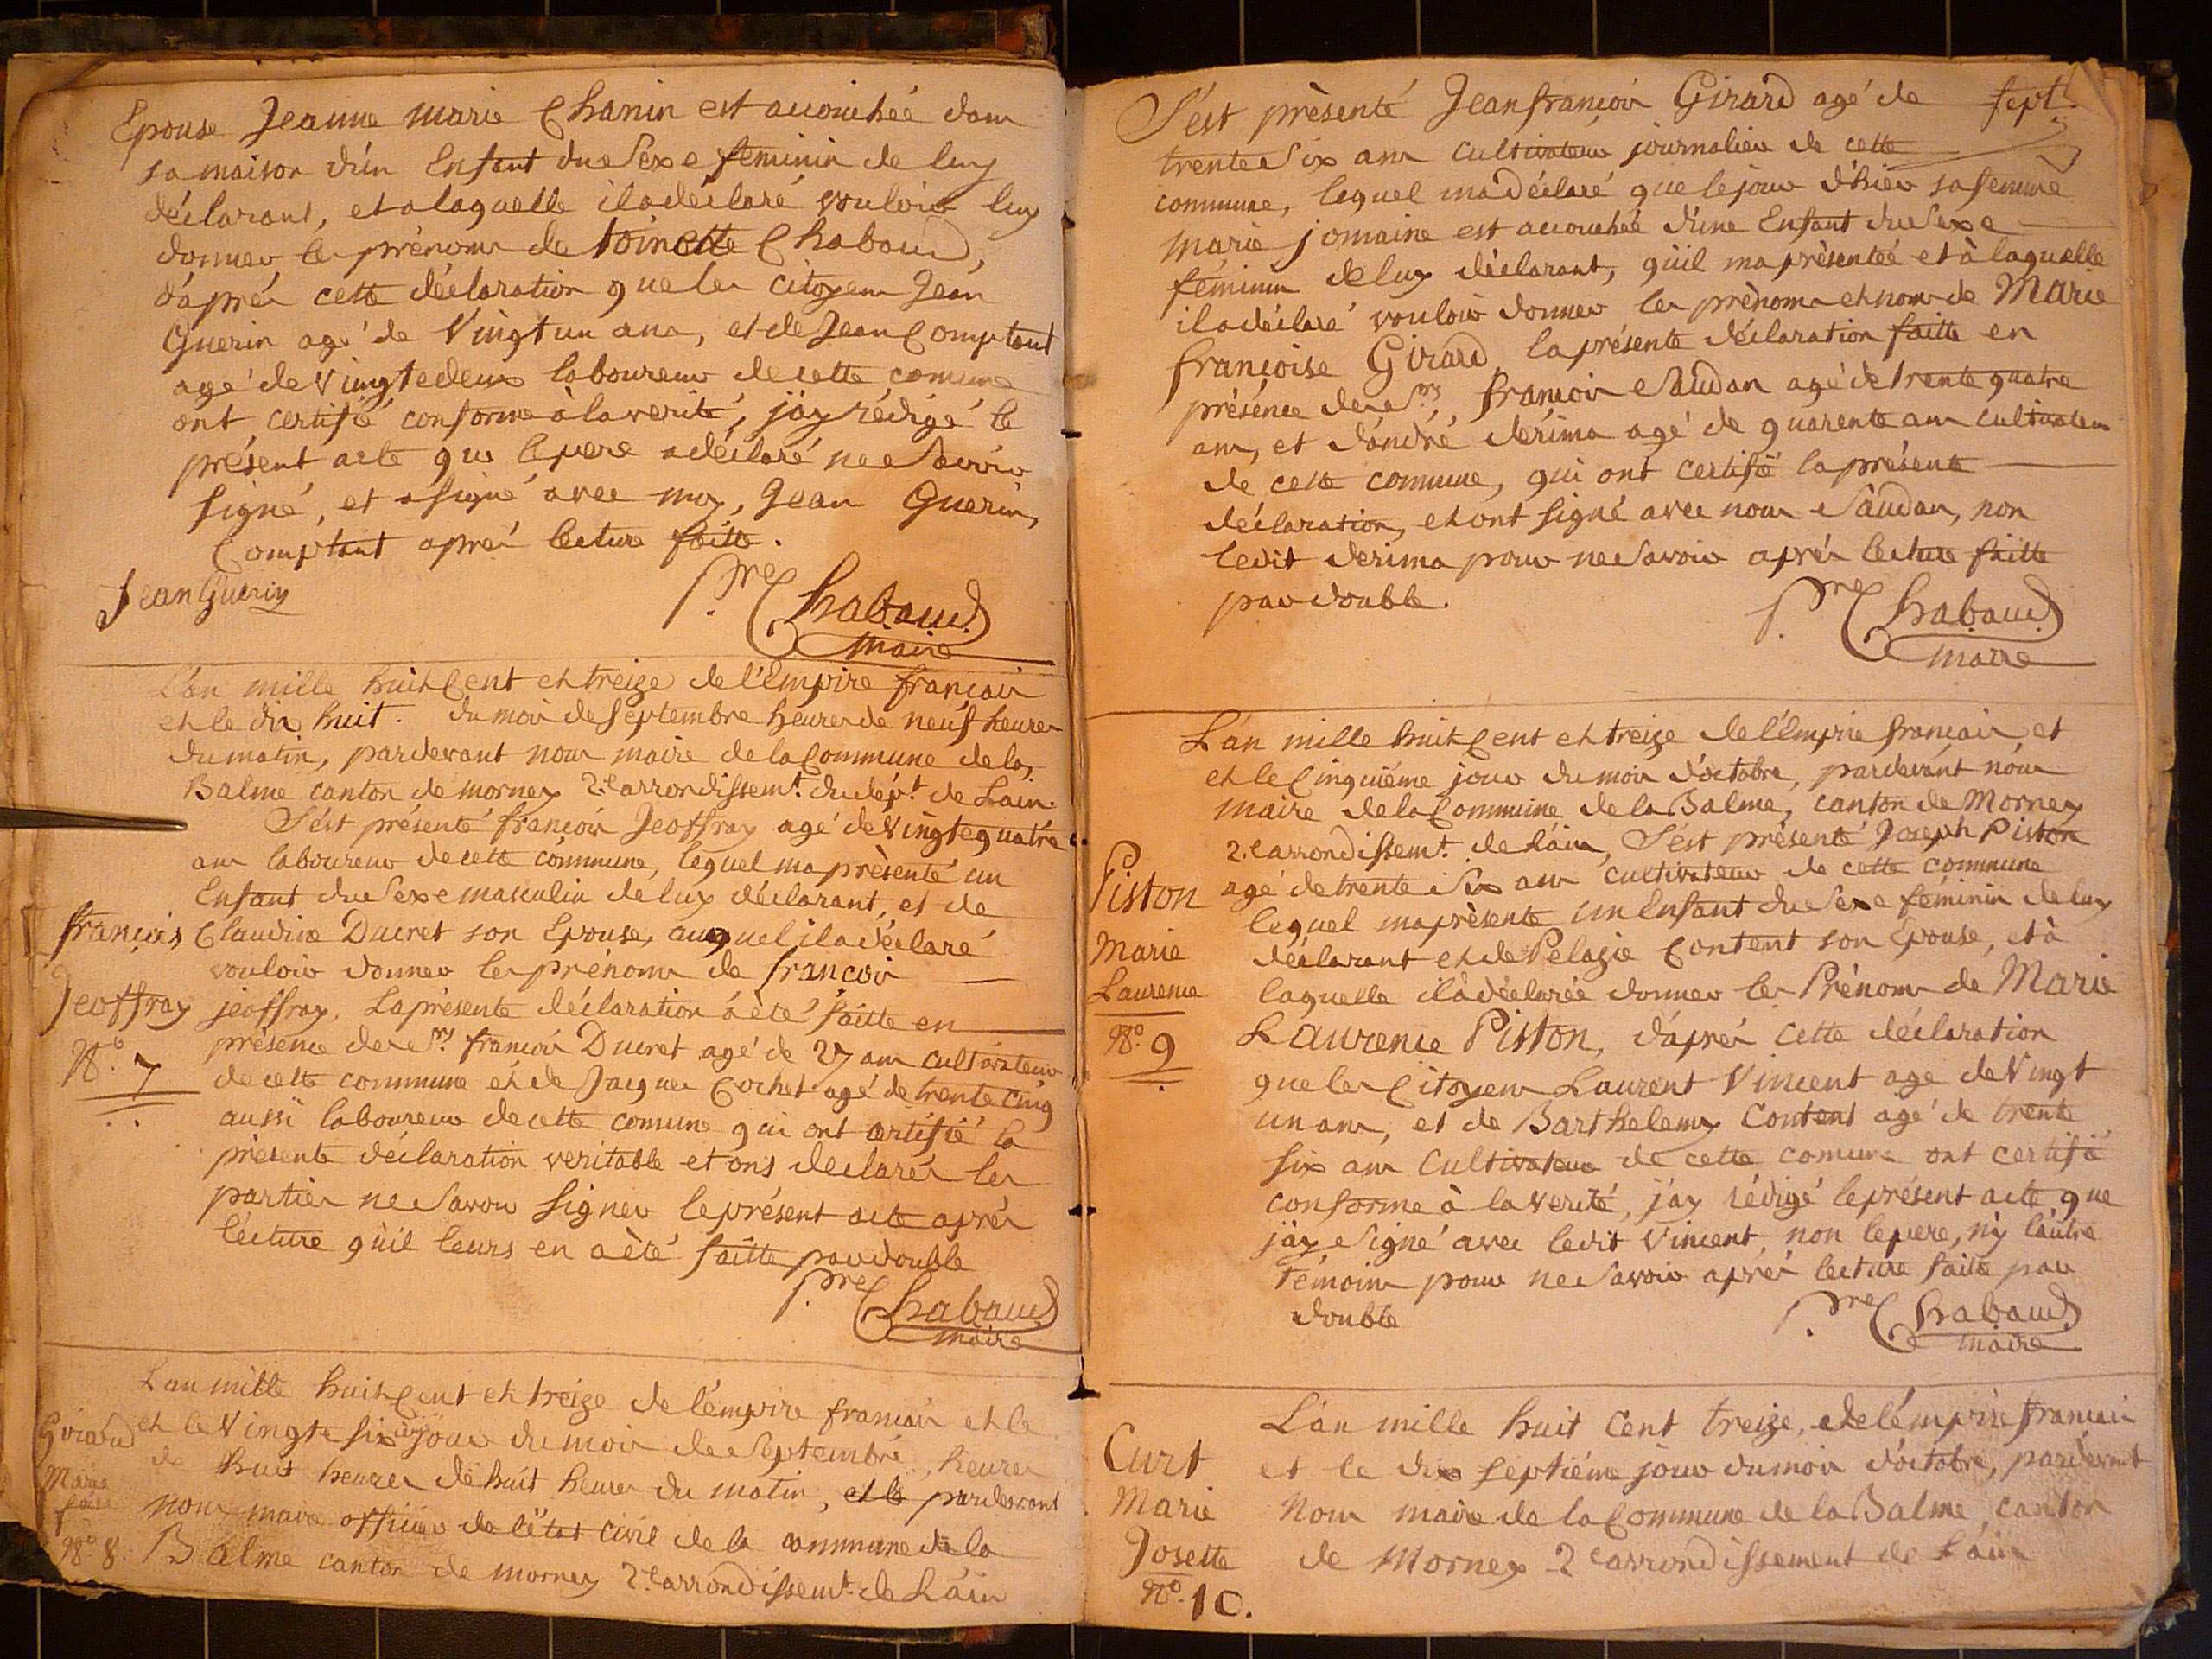 Epouse Jeanne marie Chanin est accouchéé dans
sa maison d'un Enfant du Sexe feminin de luy
déclarant, et a laquelle il a déclaré vouloir luy
donner les prénoms de toinette Chabaud,
d'aprés cette déclaration que les citoyens Jean
Guerin agé de Vingt un ans, et de Jean Comptant
agé de Vingtedeux laboureur de cette comune
ont certifié conforme à la verité, j'ay rédigé le
présent acte que le pere a déclaré ne Savoir
signé, et a signé avec moy, Jean Guerin,
Comptant aprés lecture faitte.
Jean Guerin
Pre Chabaud
maire
L'an mille huit Cent et treize de l'Empire français
et le dix huit. du mois de Septembre heures de neuf heures
du matin, pardevant nous maire de la Commune de la
Balme canton de mornay 2.e arrondissemt. du dépt. de L'ain.
S'est présenté françois Jeoffray agé de Vingtequatre
ans laboureur de cette commune, lequel ma présenté un
Enfant du Sexe masculin de luy déclarant, et de
françois
Claudine Ducret son Epouse, auquel il a déclaré
vouloir donner les prénoms de françois
Jeoffray
jeoffray, La présente déclaration a été faitte en
présence de Srs. françois Ducret agé de 27 ans cultivateur
No. 7
de cette commune et de Jacques Cochet agé de trente cinq
aussi laboureur de cette comune qui ont certifié la
présente déclaration veritable et ons déclarés les
parties ne Savoir signer le présent acte aprés
lécture qu'il leurs en a été faitte par double
Pre Chabaud
maire
L'an mille huit Cent et treize de l'émpire français et le
Girard
et le Vingte six jour du mois de Septembre, heures
de huit heures de huit heures du matin, et le pardevant
Marie
fçoise
nous maire officier de l'état civil de la commune de la
No. 8.
Balme canton de mornay 2.e arrondissemt. de L'ain
S'est présenté Jeanfrançois Girard agé de
sept.
trente Six ans cultivateur journalier de cette
commune, lequel ma déclaré que le jour d'hier sa femme
marie jomaine est accouchéé d'une Enfant du Sexe
féminin de luy déclarant, qu'il ma présentéé et à laquelle
il a déclaré vouloir donner les prénoms et nom de Marie
françoise Girard, la présente déclaration faitte en
présence de Srs. francois Saudan agé de trente quatre
ans, et d'andré derima agé de quarente ans cultivateur
de cette commune, qui ont certifié la présente
déclaration, et ont signé avec nous Saudan, non
ledit derima pour ne Savoir aprés lecture faitte
par double.
Pre Chabaud
maire
L'an mille huit Cent et treize de l'émprie français et
et le Cinquiéme jour du mois d'octobre, pardevant nous
maire de la Commune de la Balme, canton de Mornay
2.e arrondissemt. de L'ain, S'est présenté Joseph Piston
agé de trente Six ans cultivateur de cette commune
Piston
lequel ma présente un Enfant du Sexe féminin de luy
Marie
déclarant et de Pelagie Content son Epouse, et à
Laurence
laquelle il a déclaréé donner les Prénoms de Marie
No. 9
Laurence Piston, d'aprés cette déclaration
que les Citoyens Laurent Vincent age de Vingt
un ans, et de Barthelemy Content agé de trente
six ans Cultivateur de cette comune ont certifié
conforme à la verité, j'ay rédigé le présent acte que
j'ay Signé avec ledit Vincent, non le pere, n'y l'autre
témoins pour ne Savoir aprés lecture faite par
double
Pre Chabaud
maire
L'an mille huit Cent treize, de l'émprie français
Curt
et le dix septiéme jour du mois d'octobre, pardevant
Marie
Nous maire de la Commune de la Balme, canton
Josette
de Mornay 2.e arrondissement de L'ain
No. 10.